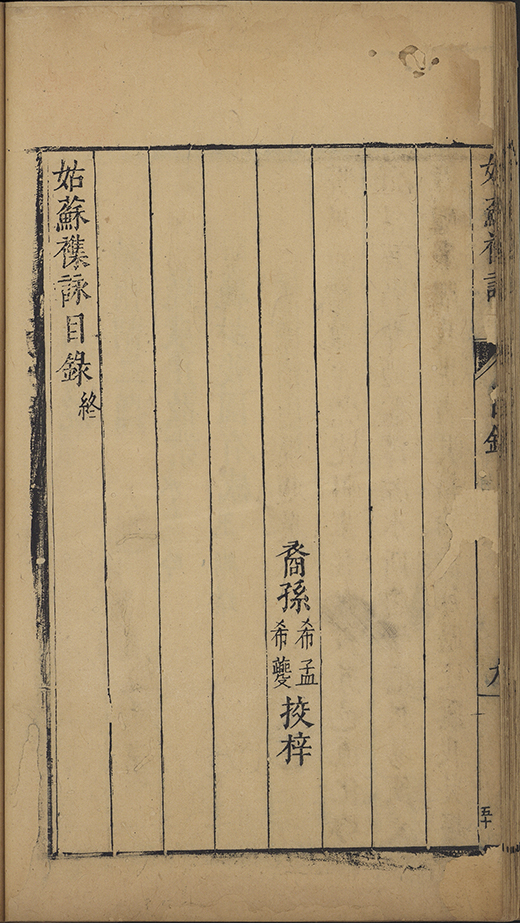 姑蘇襍詠
目錄
九
五十
裔孫希孟希夔挍梓
姑蘇襍詠目錄終